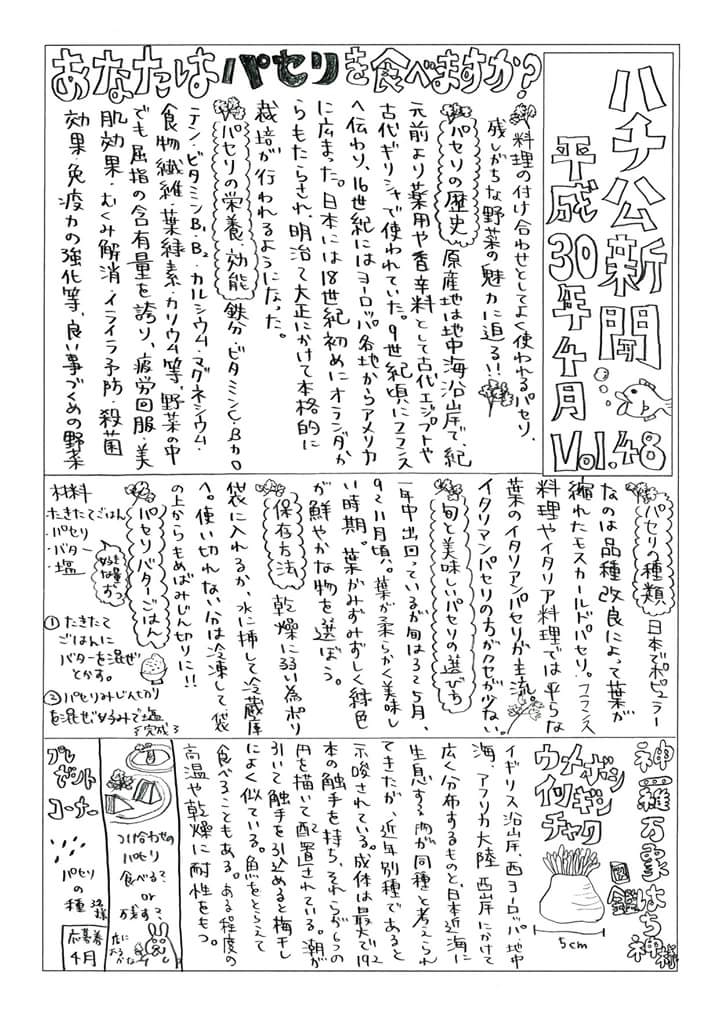 ハチ公新聞
平成30年4月
Vol.48
あなたはパセリを食べますか?
料理の付け合わせとしてよく使われるパセリ、
残しがちな野菜の魅力に迫る!!
パセリの歴史 原産地は地中海沿岸で、紀
元前より薬用や香辛料として古代エジプトや
古代ギリシャで使われていた。9世紀頃にフランス
へ伝わり、16世紀にはヨーロッパ各地からアメリカ
に広まった。日本には18世紀初めにオランダか
らもたらされ、明治〜大正にかけて本格的に
栽培が行われるようになった。
パセリの栄養・効能 鉄分・ビタミンC・βカロ
テン・ビタミンB1、B2・カルシウム・マグネシウム・
食物繊維・葉緑素・カリウム等、野菜の中
でも屈指の含有量を誇り、疲労回服・美
肌効果・むくみ解消・イライラ予防・殺菌
効果・免疫力の強化等、良い事づくめの野菜
パセリの種類 日本でポピュラー
なのは品種改良によって葉が
縮れたモスカールドパセリ。フランス
料理やイタリア料理では平らな
葉のイタリアンパセリが主流。
イタリアンパセリの方がクセが少ない。
旬と美味しいパセリの選び方
一年中出回っているが旬は3〜5月、
9〜11月頃。葉が柔らかく美味し
い時期。葉がみずみずしく緑色
が鮮やかな物を選ぼう。
保存方法 乾燥に弱い為ポリ
袋に入れるか、水に挿して冷蔵庫
へ。使い切れない分は冷凍して、袋
の上からもめばみじん切りに!!
パセリバターごはん
材料
・たきたてごはん
・パセリ
・バター
・塩
好きな量ずつ
①たきたて
ごはんに
バターを混ぜ
とかす。
②パセリみじん切り
を混ぜ好みで塩
完成
神羅万象はち神様
図鑑
ウメボシ
イソギン
チャク
5cm
イギリス沿岸、西ヨーロッパ、地中
海、アフリカ大陸西岸にかけて
広く分布するものと、日本近海に
生息する両が同種と考えられ
てきたが、近年別種であると
示唆されている。成体は最大で192
本の触手を持ち、それらが6つの
円を描いて配置されている。潮が
引いて触手を引込めると梅干し
によく似ている。魚をとらえて
食べることもある。ある程度の
高温や乾燥に耐性をもつ。
つけ合わせの
パセリ
食べる?
or
残す?
プレ
ゼント
コーナー
パセリ
の種
応募券
4月